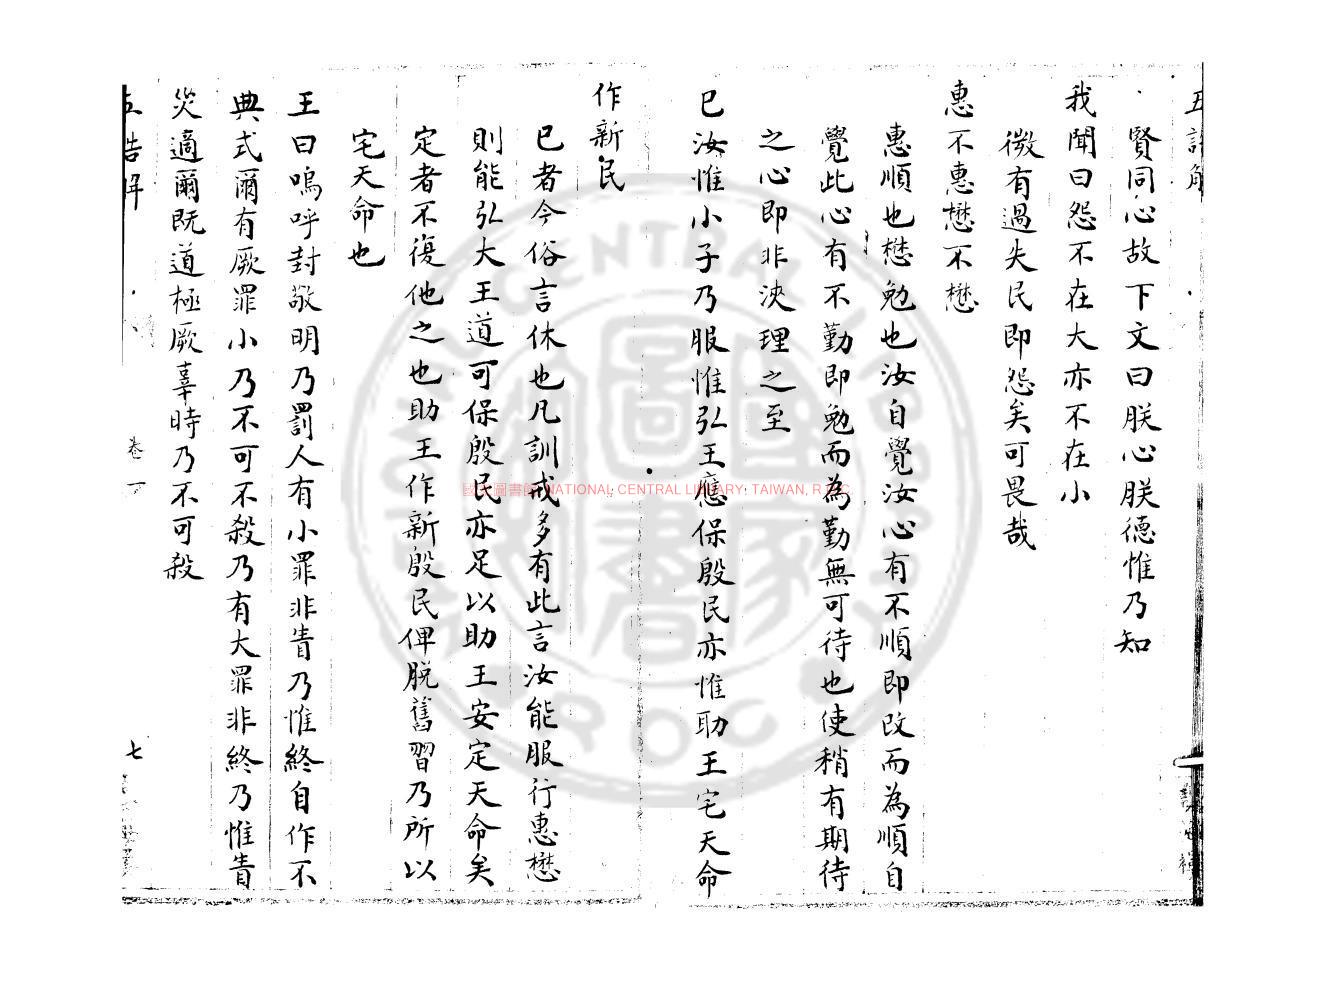 賢同心故下文曰朕心朕德惟乃知
我聞曰怨不在大亦不在小
微有過失民即怨矣可畏哉
惠不惠懋不懋
惠順也懋勉也汝自覺汝心有不順即改而為順自
覺此心有不勤即勉而為勤無可待也使稍有期待
之心即非浹理之至
已汝惟小子乃服惟弘王應保殷民亦惟助王宅天命
作新民
已者今俗言休也凡訓戒多有此言汝能服行惠懋
則能弘大王道可保殷民亦足以助王安定天命矣
定者不復他之也助王作新殷民俾脫舊習乃所以
宅天命也
王曰嗚呼封敬明乃罰人有小罪非眚乃惟終自作不
典式爾有厥罪小乃不可不殺乃有大罪非終乃惟眚
災適爾既道極厥辜時乃不可殺
五誥解
卷一
七
國家圖書館 NATIONAL CENTRAL LIBRARY, TAIWAN, R.O.C